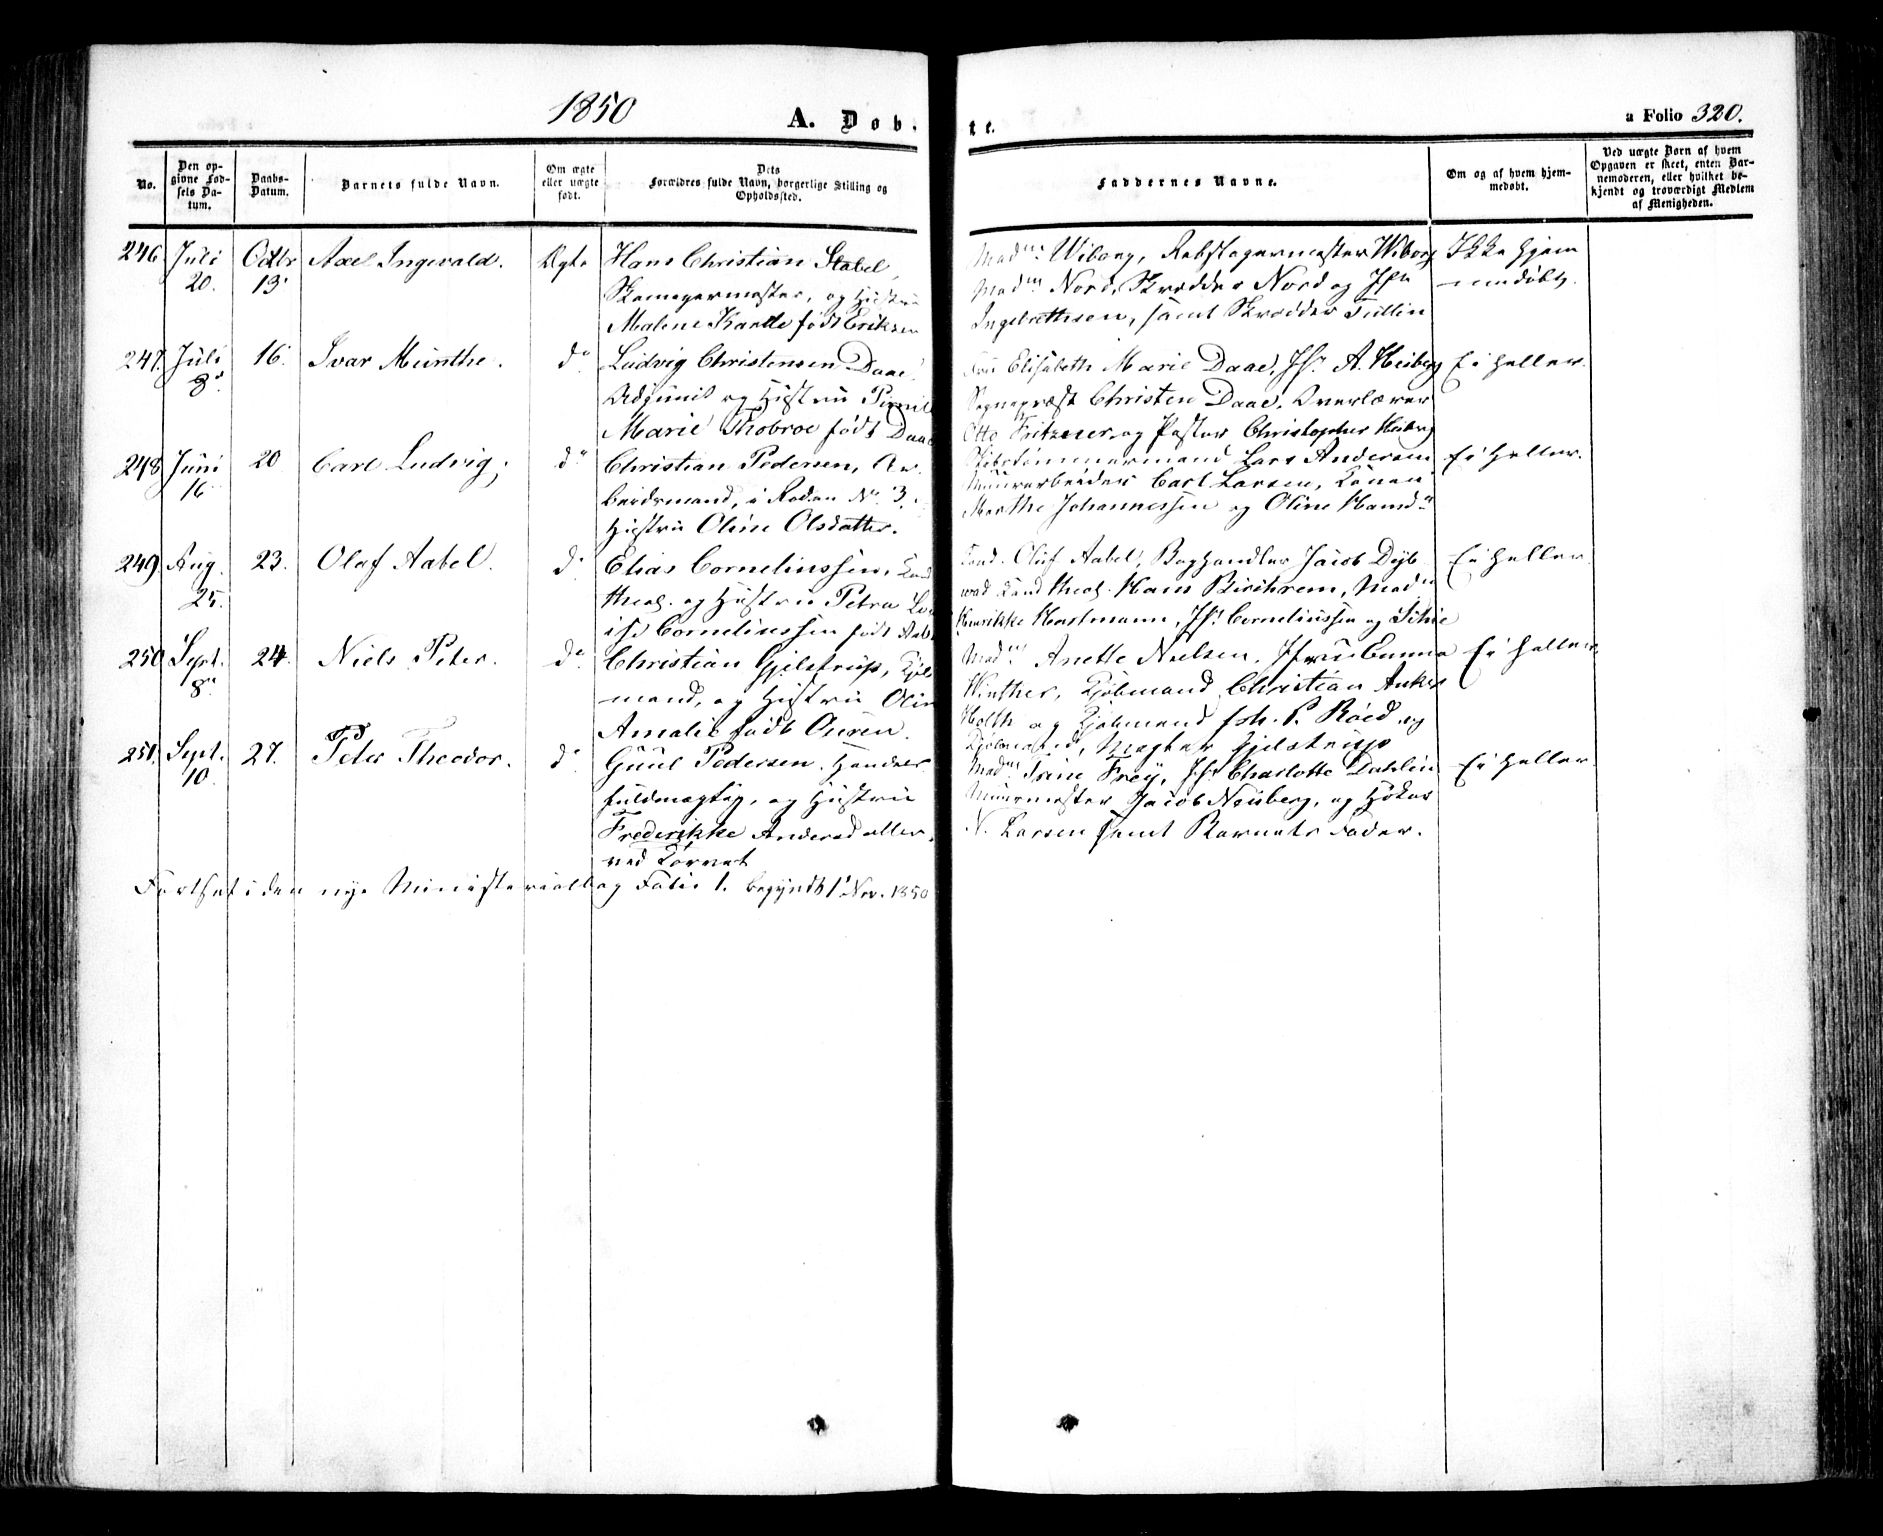 1850
A. Døb-
te.
a Folio 320.
No.
Den op-
givne Fød-
sels Da-
tum.
Daabs-
Datum.
Barnets fulde Navn.
Om ægte
eller uægte
født.
Dets
Forældres fulde Navn, borgerlige Stilling og
Opholdssted.
Faddernes Navne.
Om og af hvem hjem-
medøbt.
Ved uægte Børn af hvem
Opgaven er skeet, enten Bar-
nemoderen, eller hvilket be-
kjendt og troværdigt Medlem
af Menigheden.
246 Juli 20. Octbr 13. Axel Ingevald. Ægte Hans Christian Stabel,
Skomagermester, og Hustru
Malene Karelle født Eriksen
Madm: Wiborg, Rebslagermester Wiborg
Madm Nord, Skrædder Nord og Jfr
Ingebrethsen, samt Skrædder Tullin
Ikke hjem
medøbt.
247. Juli 8d. 16. Ivar Munthe. do Ludvig Christensen Daae,
Adjunct og Hustru
Marie Thobroe født Daae
Fru Elisabeth Marie Daae, Jfr. A. Heiberg
Sognepræst Christen Daae, Overlærer
Otto Fritzner, og Pastor Christopher Heiberg
Ei heller.
248 Juni 16 20 Carl Ludvig, do Christian Pedersen, Ar-
beidsmand, i Roden No 3.
Hustru Oline Olsdatter.
Skibstømmermand Lars Andersen
Muurarbeider Carl Larsen, Konen
Marthe Johannessen og Oline Hansd.
Ei heller.
249. Aug. 25. 23. Olaf Aabel. do Elias Corneliussen, Cand
theol. og Hustru Petra Lou
ise Corneliussen født Aabel
Cand. Oluf Aabel, Boghandler Jacob Dyb
wad Cand theol. Hans Birchrem, Madm
Henrikke Hartmann, Jfr. Corneliussen og
Ei heller
250 Sept. 8de 24. Niels Peter. do Christian Gjelstrup, Kjøb
mand, og Hustru Olin
Amalie født Ouren.
Madm: Anette Nielsen, Jfru Emma
Winther, Kjøbmand Christian Anker
Holth og Kjøbmand Joh. P. Röed og
Kjøbmand, Gjelstrup
Ei heller
251. Sept. 10. 27. Peter Theodor. do Guul Pedersen, Handels
fuldmægtig, og Hustru
Frederikke Andersdatter.
ved Torvet
Madm: Trine Frey, Jfr. Charlotte Dahlin
Muurmester Jacob Neuberg, og Høker
N. Larsen samt Barnets Fader.
Ei heller
Fortsat i den nye Ministerialbog Folio 1. begyndt 1. Nov. 1850